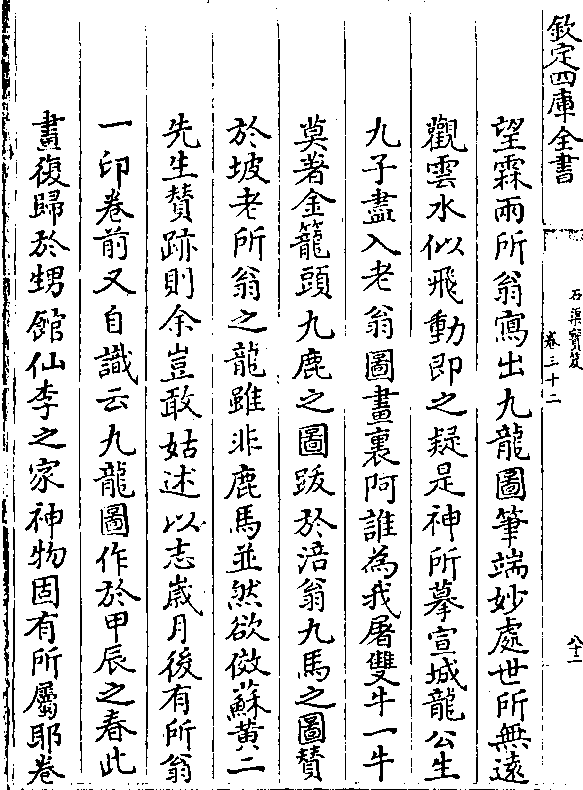 欽定四庫全書
石渠寳笈
卷三十二
望霖雨所翁寫出九龍圖筆端妙處世所無遠
觀雲水似飛動即之疑是神所摹宣城龍公生
九子盡入老翁圖畫裏阿誰為我屠雙牛一牛
莫著金籠頭九鹿之圖跋於涪翁九馬之圖賛
於坡老所翁之龍雖非鹿馬並然欲傚蘇黄二
先生賛跡則余豈敢姑述以志嵗月後有所翁
一印卷前又自識云九龍圖作於甲辰之春此
畫復歸於甥館仙李之家神物固有所屬耶卷